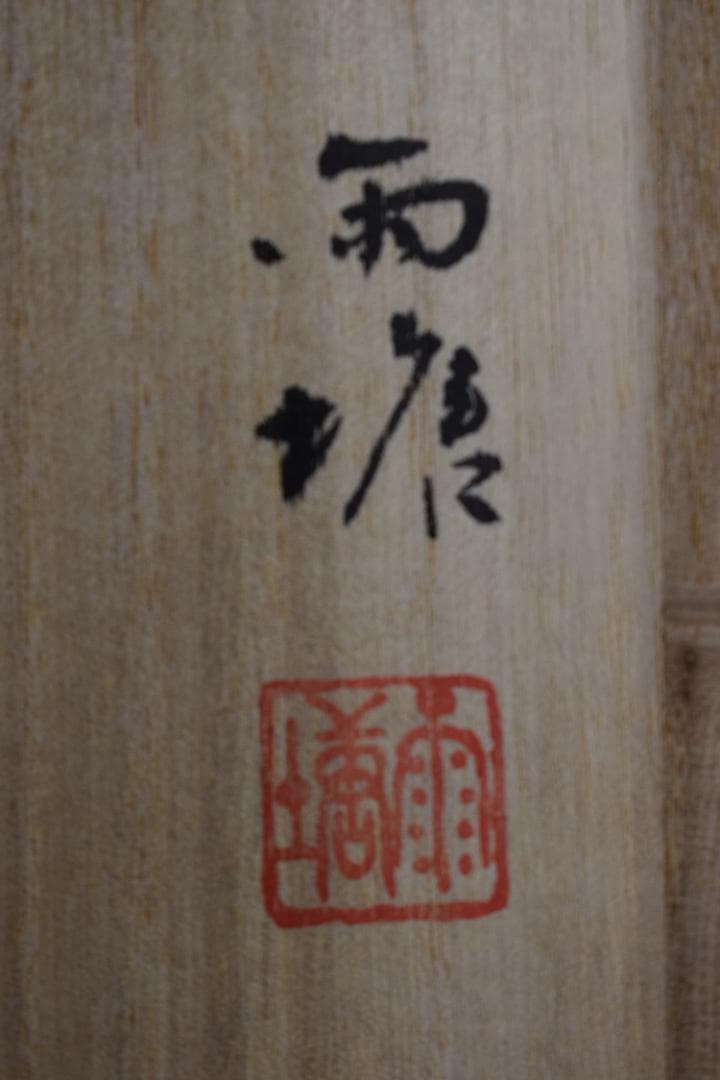 雨塘
雨塘